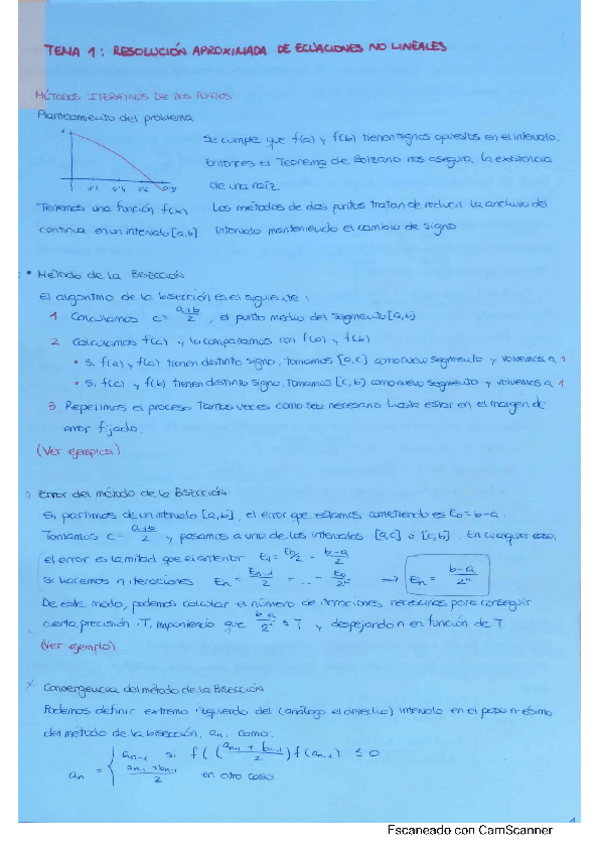 TEMA 1: RESOLUCIÓN APROXIMADA DE ECUACIONES NO LINEALES
MÉTODOS ITERATIVOS DE DOS PUNTOS
Planteamiento del problema
Se cumple que f(a) y f(b) tienen signos opuestos en el intervalo.
Entonces el Teorema de Bolzano nos asegura, la existencia
de una raíz.
0'2 0'4 0'6 0'8
Tenemos una función f(x) Los métodos de dos puntos tratan de reducir la anchura del
continua en un intervalo [a,b] intervalo manteniendo el cambio de signo
• Método de la BISECCIÓN
El algoritmo de la bisección es el siguiente:
1 Calculamos c = a+b/2, el punto medio del segmento [a,b]
2 Calculamos f(c) y lo comparamos con f(a) y f(b)
• Si f(a) y f(c) tienen distinto signo, tomamos [a,c] como nuevo segmento y volvemos a 1
• Si f(c) y f(b) tienen distinto signo, tomamos [c,b] como nuevo segmento y volvemos a 1
3. Repetimos el proceso tantas veces como sea necesario hasta estar en el margen de
error fijado.
(Ver ejemplos)
Error del método de la BISECCIÓN
Si partimos de un intervalo [a,b], el error que estamos cometiendo es E₀ = b-a.
Tomamos c = a+b/2 y pasamos a uno de los intervalos [a,c] o [c,b]. En cualquier caso,
el error es la mitad que el anterior E₁ = E₀/2 = b-a/2
Si hacemos n iteraciones Eₙ = Eₙ₋₁/2 = ... = E₀/2ⁿ → Eₙ = b-a/2ⁿ
De este modo, podemos calcular el número de iteraciones necesarias para conseguir
cierta precisión T, imponiendo que b-a/2ⁿ ≤ T y despejando n en función de T.
(Ver ejemplo)
Convergencia del método de la BISECCIÓN
Podemos definir extremo izquierdo del (análogo el derecho) intervalo en el paso n-ésimo
del método de la bisección, aₙ, como:
aₙ = { aₙ₋₁ si f((aₙ₋₁ + bₙ₋₁/2) f(aₙ₋₁) ≤ 0
aₙ₋₁ + bₙ₋₁/2 en otro caso
1
Escaneado con CamScanner